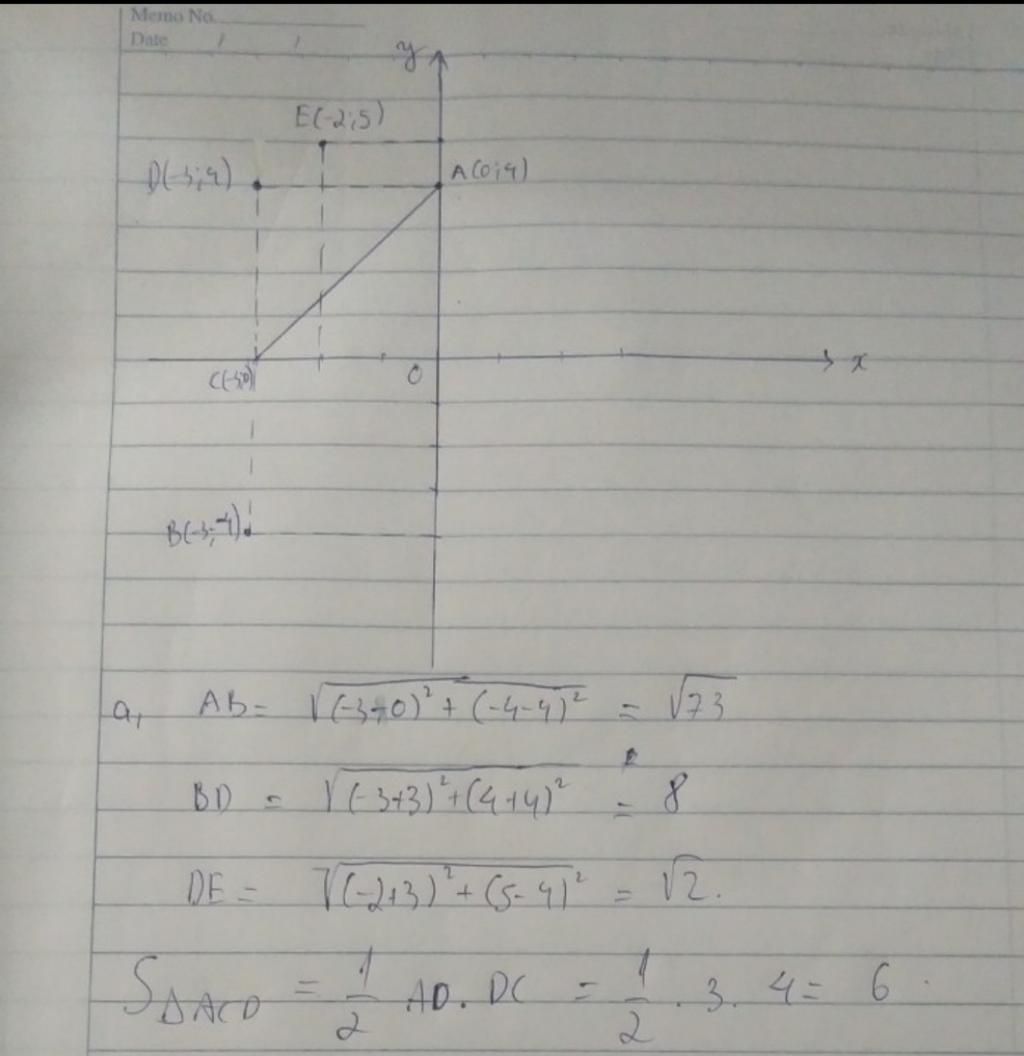 Memo No.
Date / /
y
E(-2;5)
D(-3;4)
A(0;4)
C(-3;0)
O
x
B(-3;-4)
a, AB = √(-3+0)² + (-4-4)² = √73
BD = √(-3+3)² + (4+4)² = 8
DE = √(-2+3)² + (5-4)² = √2.
S△ACD = 1/2 AD. DC = 1/2 . 3. 4 = 6.